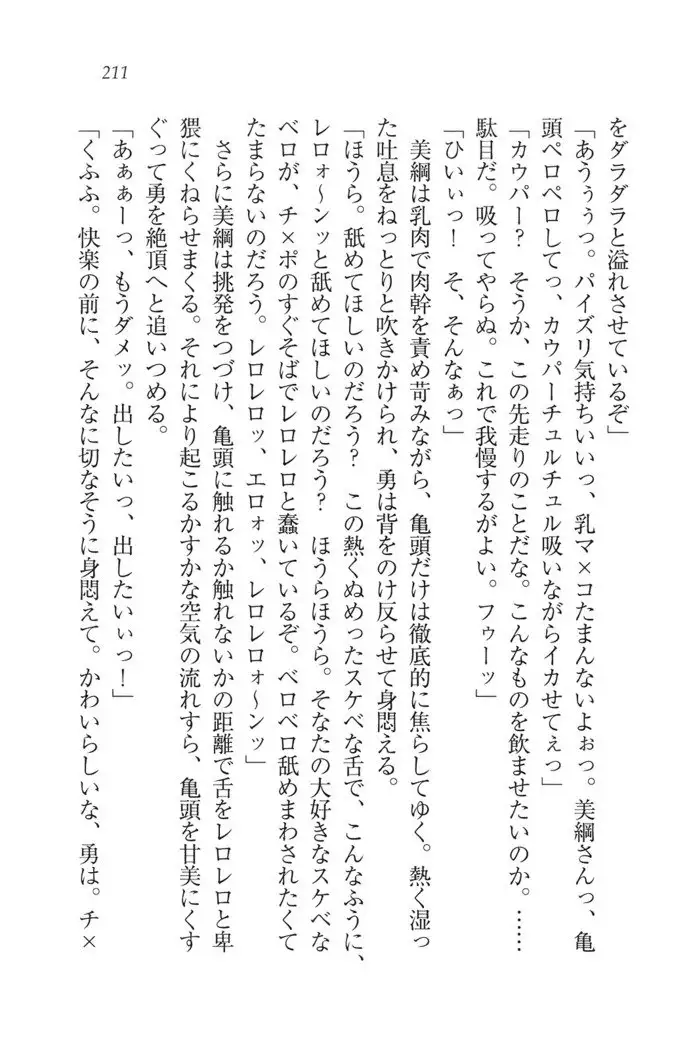 211
をダラダラと溢れさせているぞ」
「あうぅぅっ。パイズリ気持ちいいっ、乳マ×コたまんないよぉっ。美綱さんっ、亀
頭ペロペロしてっ、カウパーチュルチュル吸いながらイカせてぇっ」
「カウパー？　そうか、この先走りのことだな。こんなものを飲ませたいのか。……
駄目だ。吸ってやらぬ。これで我慢するがよい。フゥーッ」
「ひいぃっ！　そ、そんなぁっ」
　美綱は乳肉で肉幹を責め苛みながら、亀頭だけは徹底的に焦らしてゆく。熱く湿っ
た吐息をねっとりと吹きかけられ、勇は背をのけ反らせて身悶える。
「ほうら。舐めてほしいのだろう？　この熱くぬめったスケベな舌で、こんなふうに、
レロォ～ンッと舐めてほしいのだろう？　ほうらほうら。そなたの大好きなスケベな
ベロが、チ×ポのすぐそばでレロレロと蠢いているぞ。ベロベロ舐めまわされたくて
たまらないのだろう。レロレロッ、エロォッ、レロレロォ～ンッ」
　さらに美綱は挑発をつづけ、亀頭に触れるか触れないかの距離で舌をレロレロと卑
猥にくねらせまくる。それにより起こるかすかな空気の流れすら、亀頭を甘美にくす
ぐって勇を絶頂へと追いつめる。
「あぁぁーっ、もうダメッ。出したいっ、出したいぃっ！」
「くふふ。快楽の前に、そんなに切なそうに身悶えて。かわいらしいな、勇は。チ×